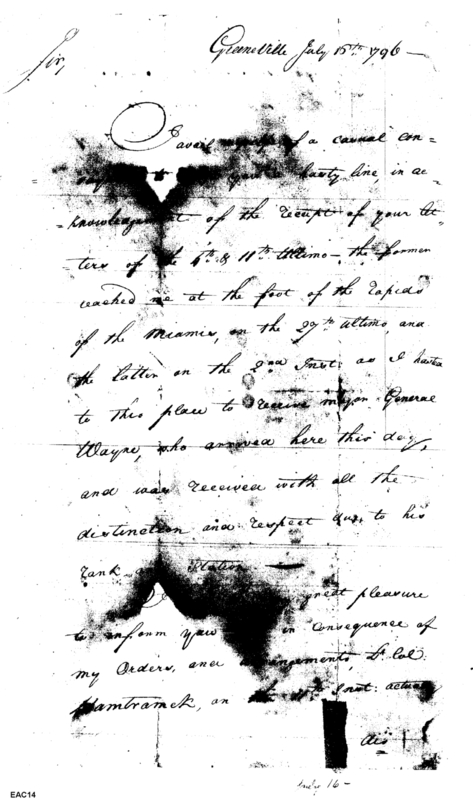 Greeneville July 15th 1796 —
Sir,
I avail myself of a casual con=
= you a hasty line in ac=
=knowledgement of the receipt of your let=
ters of the 4th & 11th Ultimo — the former
reached me at the foot of the rapids
of the Miamis, on the 27th Ultimo, and
the latter on the 2nd Inst: as I
to this place to receive Major General
Wayne, who arrived here this day,
and was received with all the
distinction and respect due, to his
rank and Station —
great pleasure
to inform you in Consequence of
my Orders, and arrangements, Lt Col:
Hamtramck, on Inst:
did
July 16 —
EAC14